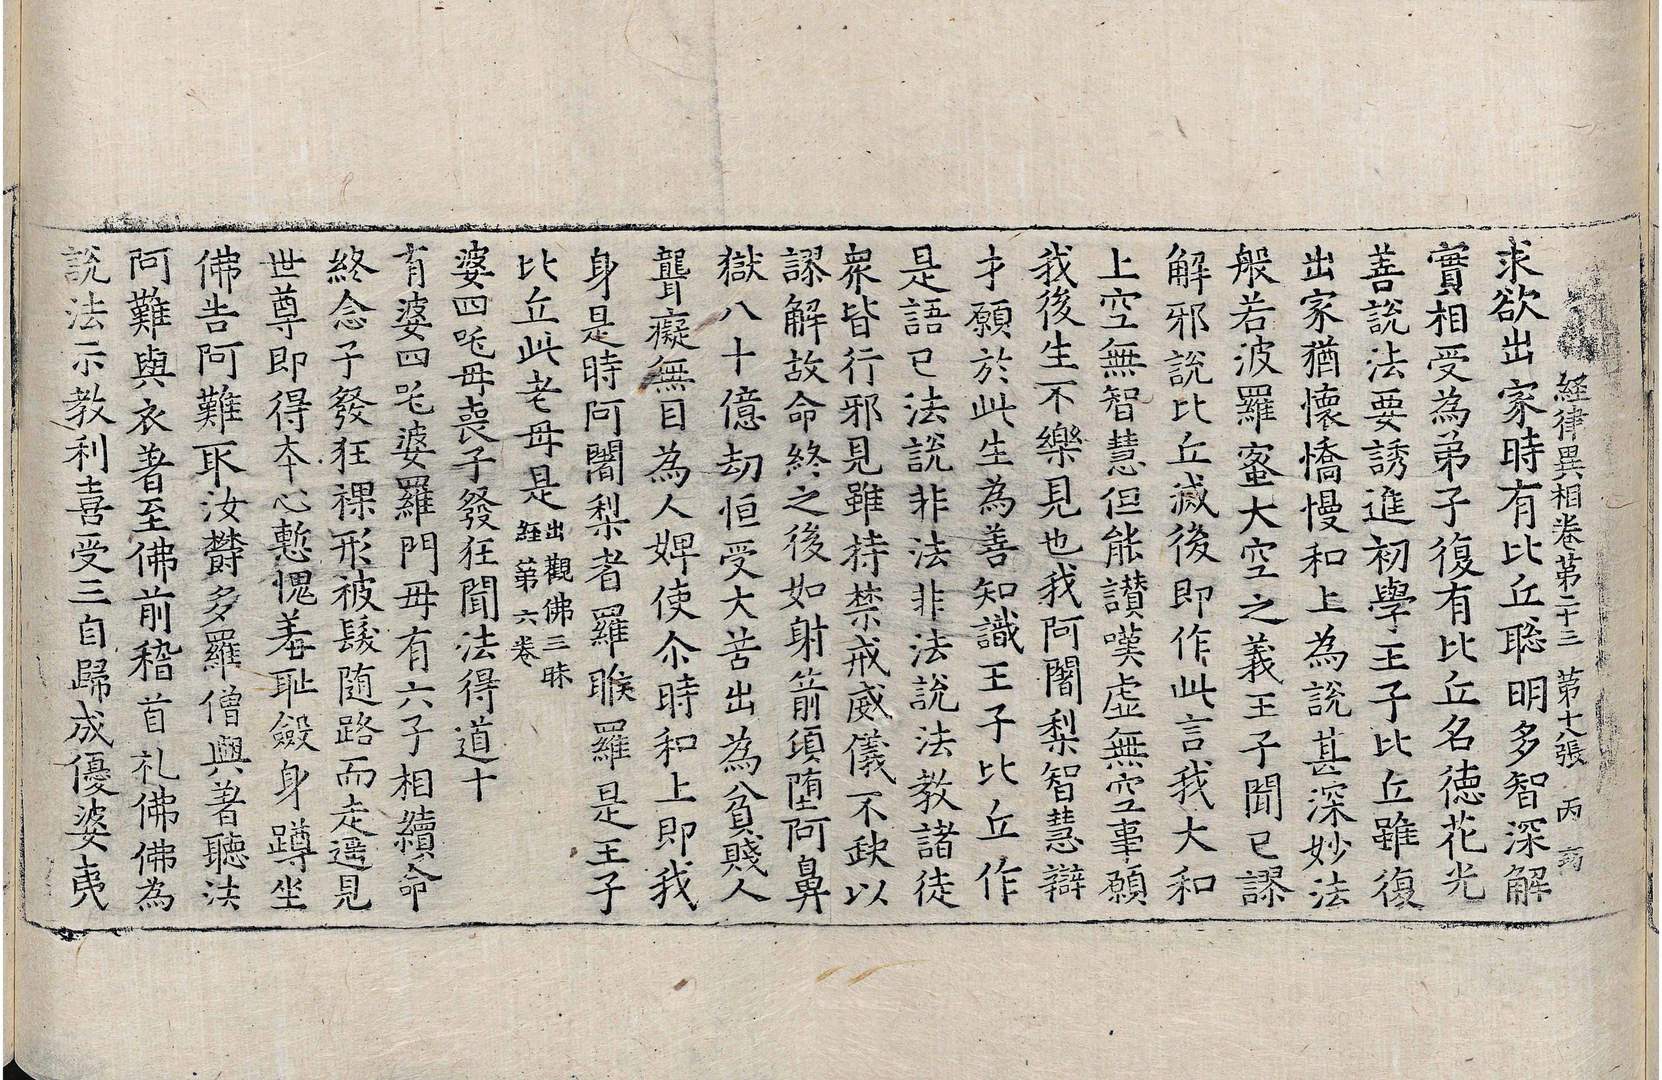 経律異相卷第二十三 第十八張 丙
求欲出家時有比丘聡明多智深解
實相受為弟子復有比丘名徳花光
善說法要誘進初學王子比丘雖復
出家猶懷憍慢和上為說甚深妙法
般若波羅蜜大空之義王子聞已謬
解邪說比丘滅後即作此言我大和
上空無智慧但能讃嘆虚無空事願
我後生不樂見也我阿闍梨智慧辯
才願於此生為善知識王子比丘作
是語已法說非法非法說法教諸徒
衆皆行邪見雖持禁戒威儀不缺以
謬解故命終之後如射箭頃墮阿鼻
獄八十億劫恒受大苦出為貧賤人
聾癡無目為人婢使尒時和上即我
身是時阿闍梨者羅睺羅是王子
比丘此老母是出觀佛三昧経第六卷
婆四吒母喪子發狂聞法得道十
有婆四吒婆羅門母有六子相續命
終念子發狂裸形被髮随路而走遥見
世尊即得本心慙愧羞恥斂身蹲坐
佛告阿難取汝欝多羅僧與著聴法
阿難與衣著至佛前稽首礼佛佛為
說法示教利喜受三自歸成優婆夷